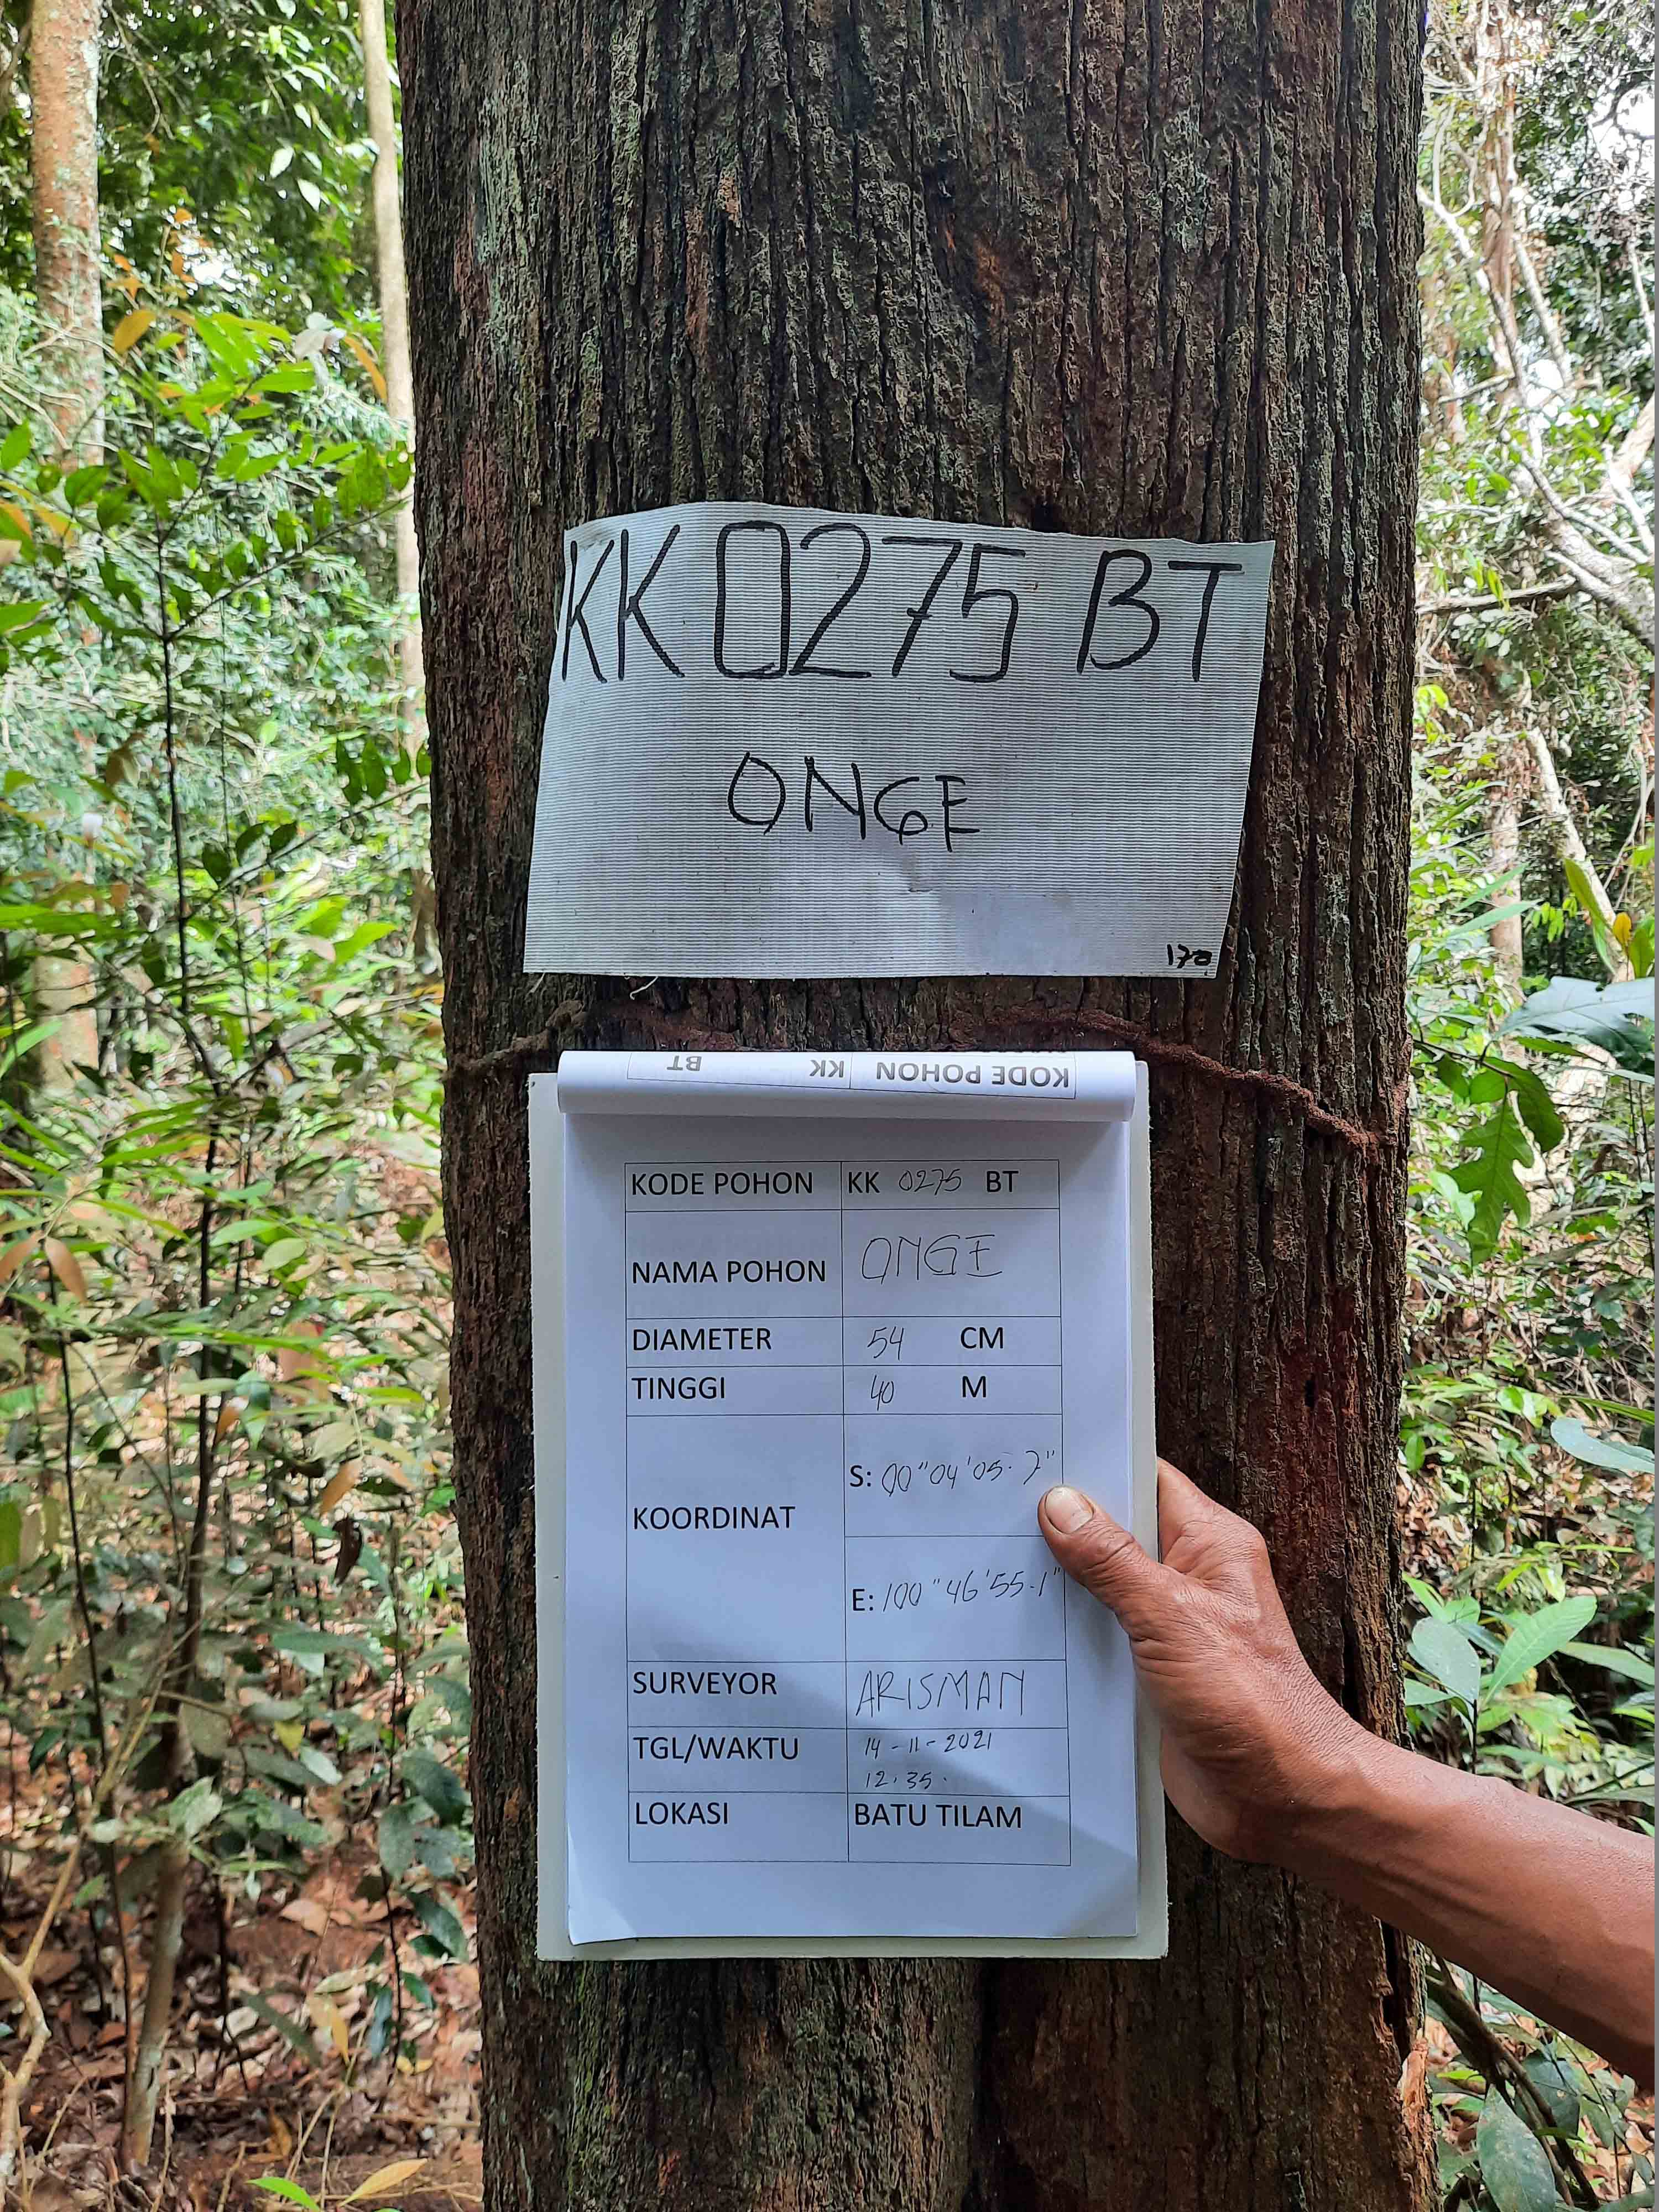 KK 0275 BT
ONGE
170
KODE POHON KK BT
KODE POHON KK 0275 BT
NAMA POHON ONGE
DIAMETER 54 CM
TINGGI 40 M
KOORDINAT S: 00"04'05.7"
E: 100"46'55.1"
SURVEYOR ARISMAN
TGL/WAKTU 14-11-2021
12.35.
LOKASI BATU TILAM